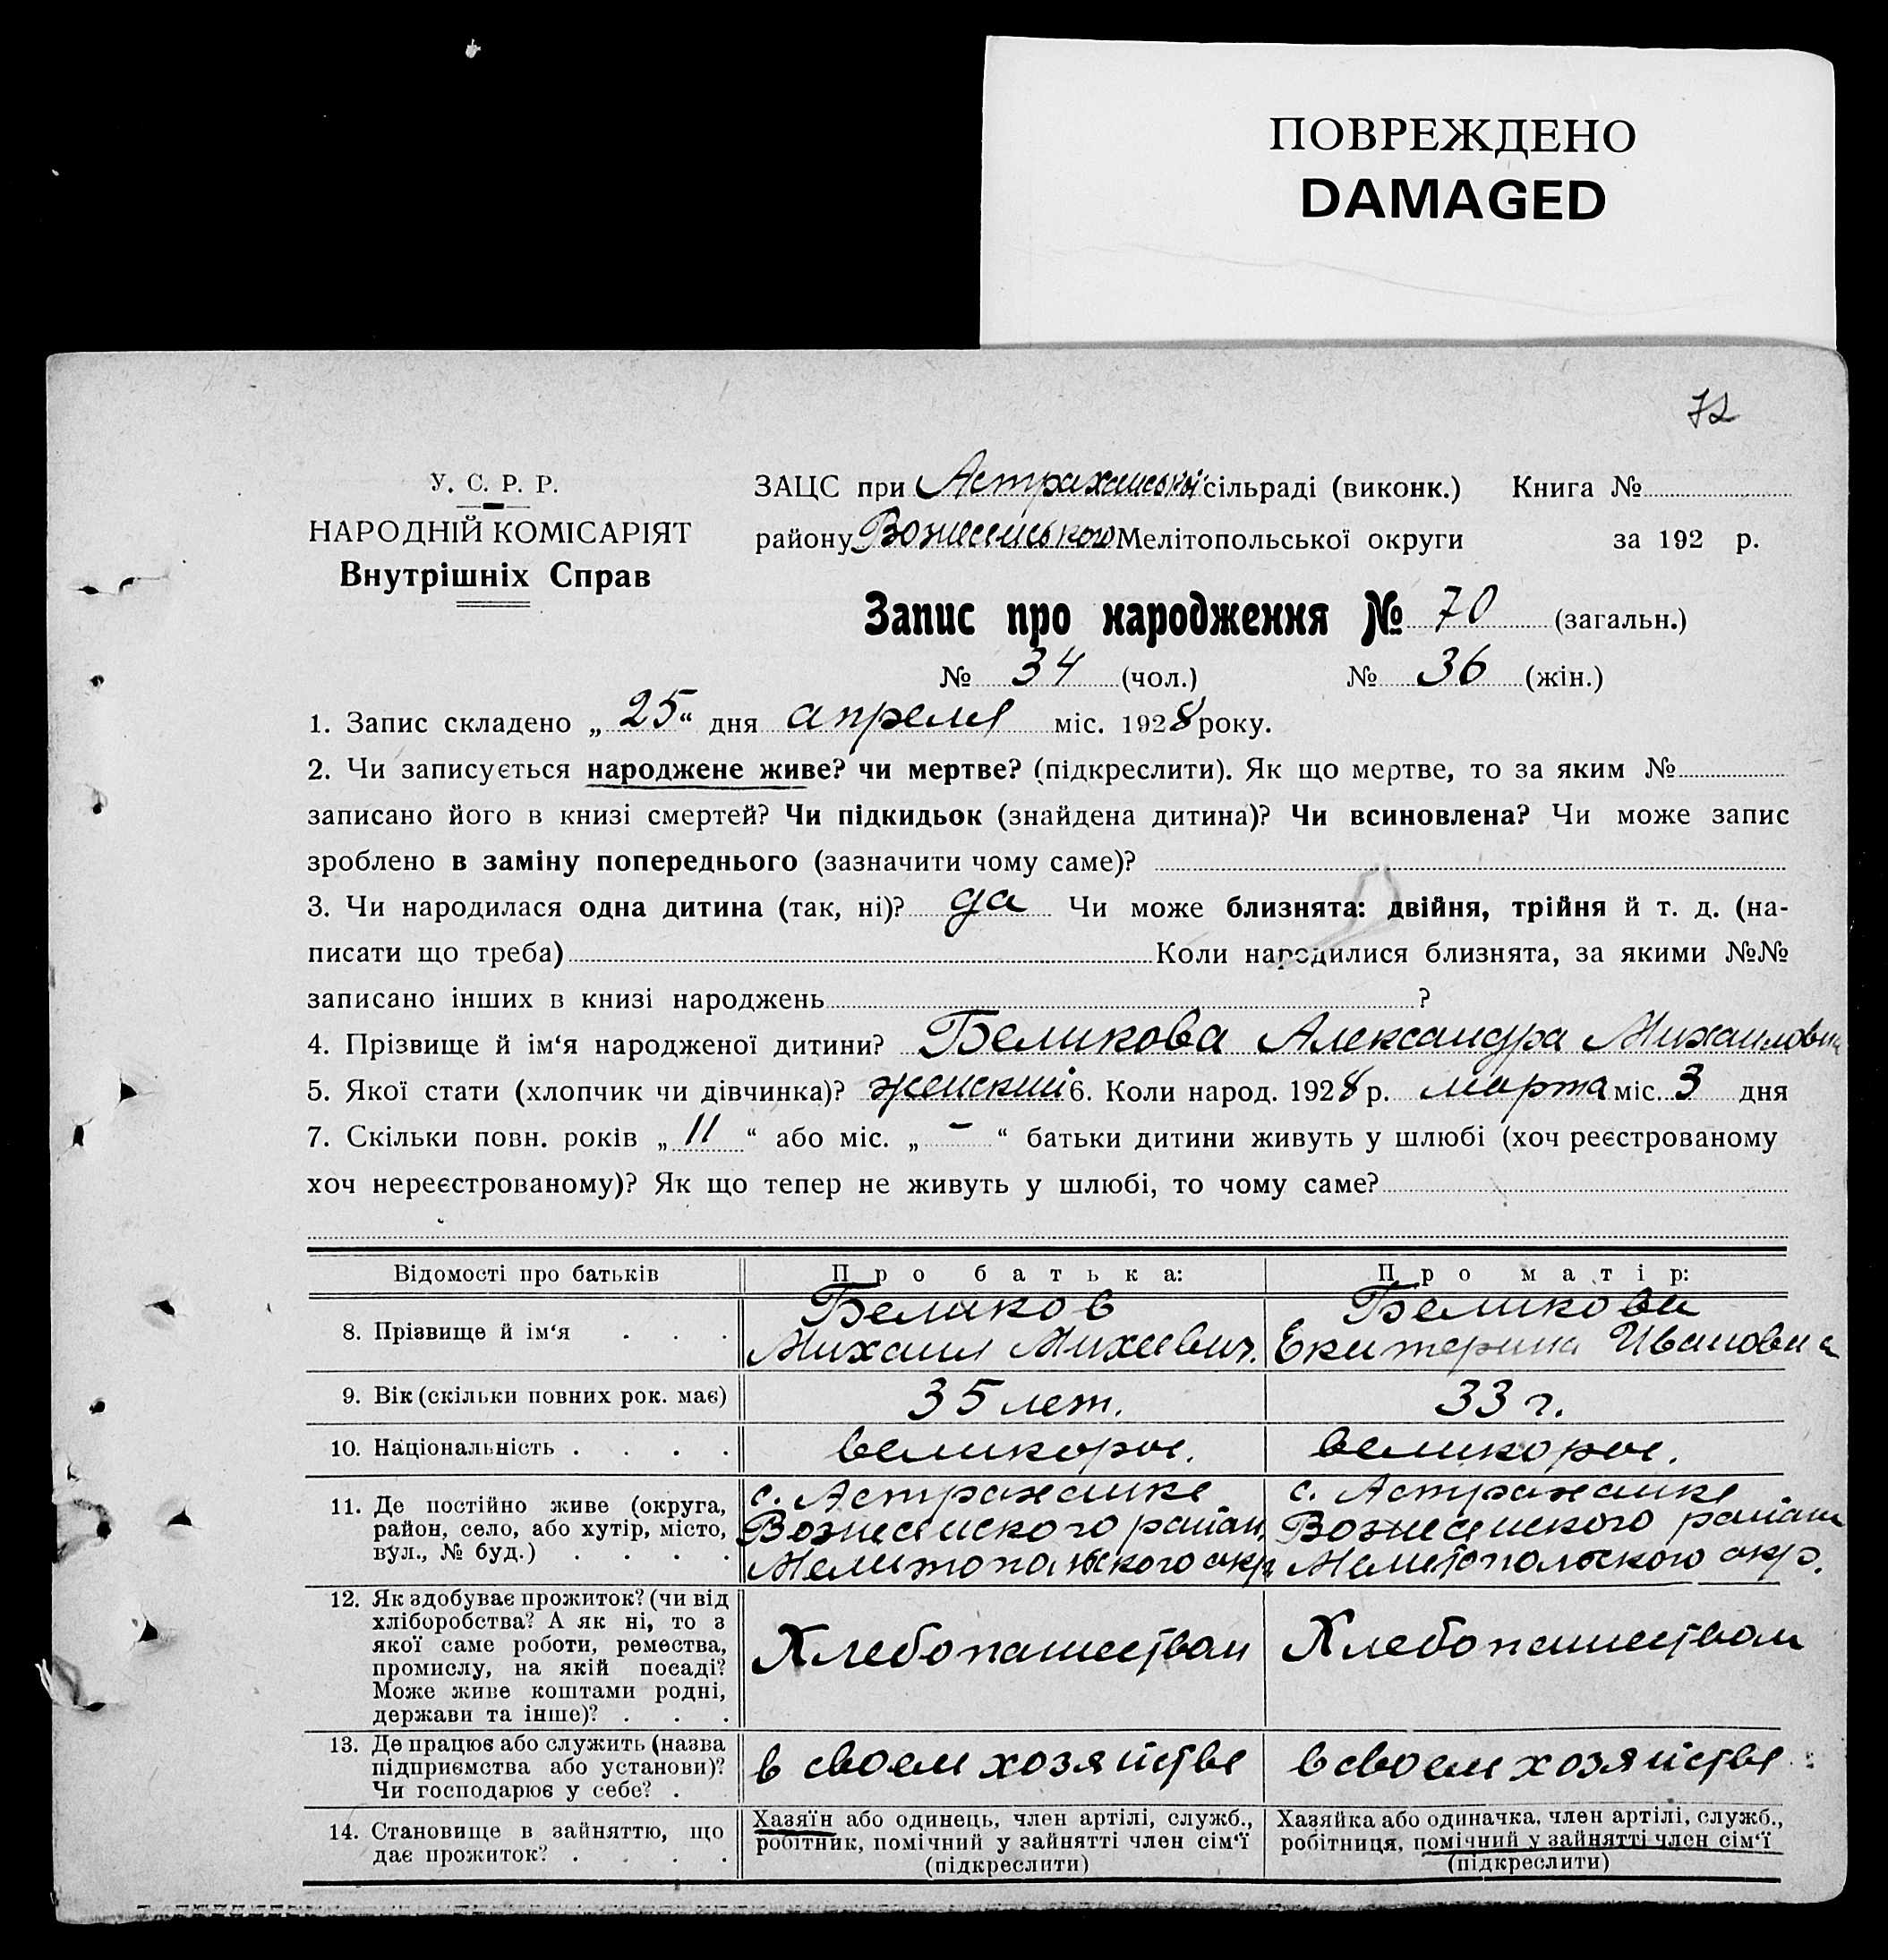 ПОВРЕЖДЕНО
DAMAGED
72
У. С. Р. Р.
НАРОДНІЙ КОМІСАРІЯТ
Внутрішніх Справ
ЗАЦС при Астраханській сільраді (виконк.) Книга №
району Вознесенського Мелітопольської округи за 192 р.
Запис про народження № 70 (загальн.)
№ 34 (чол.) № 36 (жін.)
1. Запис складено „25“ дня апреля міс. 1928 року.
2. Чи записується народжене живе? чи мертве? (підкреслити). Як що мертве, то за яким №
записано його в книзі смертей? Чи підкидьок (знайдена дитина)? Чи всиновлена? Чи може запис
зроблено в заміну попереднього (зазначити чому саме)?
3. Чи народилася одна дитина (так, ні)? да Чи може близнята: двійня, трійня й т. д. (на-
писати що треба) Коли народилися близнята, за якими №№
записано інших в книзі народжень ?
4. Прізвище й ім‘я народженої дитини? Беликова Александра Михаиловна
5. Якої стати (хлопчик чи дівчинка)? женский 6. Коли народ. 1928 р. марта міс. 3 дня
7. Скільки повн. років „11“ або міс. „-“ батьки дитини живуть у шлюбі (хоч реєстрованому
хоч нереєстрованому)? Як що тепер не живуть у шлюбі, то чому саме?
Відомості про батьків Про батька: Про матір:
8. Прізвище й ім‘я . . .
Беликов
Михаил Михеевич.
Беликова
Екатерина Ивановна
9. Вік (скільки повних рок. має) 35 лет. 33 г.
10. Національність . . . . великорос. великорос.
11. Де постійно живе (округа,
район, село, або хутір, місто,
вул., № буд.) . . . .
с. Астраханке
Вознесенского район.
Мелитопольского окр.
с. Астраханке
Вознесенского района
Мелитопольского окр.
12. Як здобуває прожиток? (чи від
хліборобства? А як ні, то з
якої саме роботи, ремества,
промислу, на якій посаді?
Може живе коштами родні,
держави та інше)? . . .
Хлебопашеством
Хлебопашеством
13. Де працює або служить (назва
підприємства або установи)?
Чи господарює у себе? .
в своем хозяйстве
в своем хозяйстве
14. Становище в зайняттю, що
дає прожиток? . . . .
Хазяїн або одинець, член артілі, служб.,
робітник, помічний у зайнятті член сім‘ї
(підкреслити)
Хазяйка або одиначка, член артілі, служб.,
робітниця, помічний у зайнятті член сім‘ї
(підкреслити)